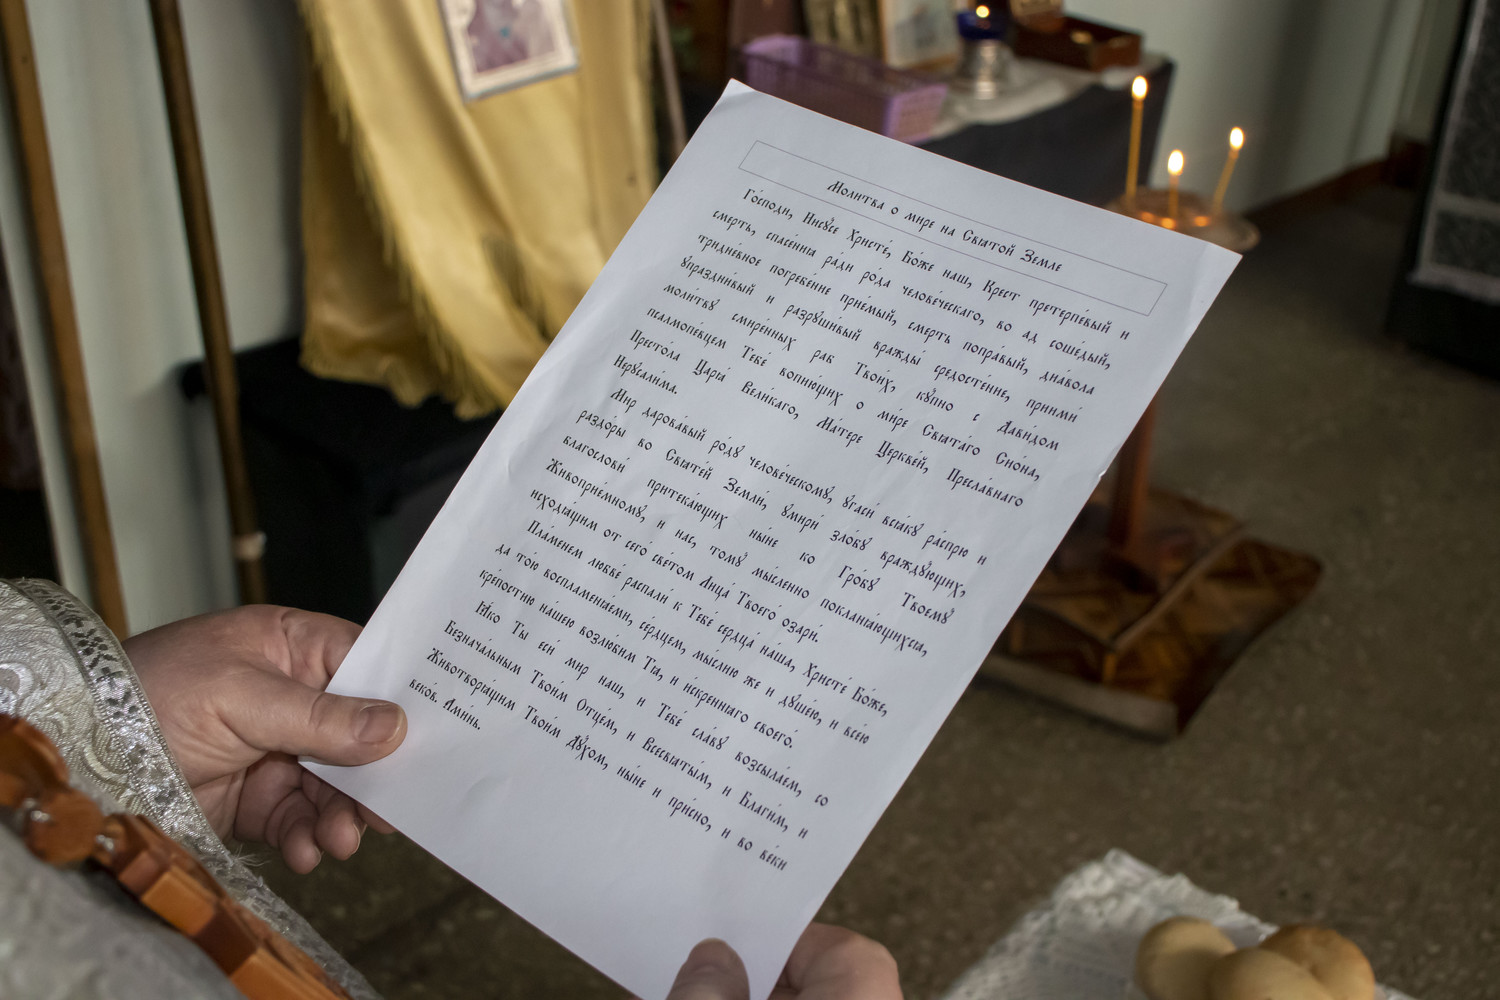 Молитва о мире на Святой Земле
Го́споди, Иису́се Христе́, Бо́же наш, Крест претерпе́вый и
смерть, спасе́ния ра́ди ро́да челове́ческаго, во ад соше́дый,
тридне́вное погребе́ние прие́мый, смерть попра́вый, диа́вола
упраздни́вый и разруши́вый вражды́ средосте́ние, приими́
моли́тву смире́нных раб Твои́х, ку́пно с Дави́дом
псалмопе́вцем Тебе́ вопию́щих о ми́ре Свята́го Сио́на,
Престо́ла Царя́ Вели́каго, Ма́тере Церкве́й, Пресла́внаго
Иерусали́ма.
Мир дарова́вый ро́ду челове́ческому, угаси́ вся́ку ра́спрю и
раздо́ры во Святе́й Земли́, умири́ зло́бу вражду́ющих,
благослови́ притека́ющих ны́не ко Гро́бу Твоему́
Живоприе́мному, и нас, тому́ мы́сленно покланя́ющихся,
исходя́щим от сего́ све́том Лица́ Твоего́ озари́.
Пла́менем любве́ распали́ к Тебе́ сердца́ на́ша, Христе́ Бо́же,
да то́ю воспламеня́еми, се́рдцем, мы́слию же и душе́ю, и все́ю
кре́постию на́шею возлю́бим Тя, и и́скренняго своего́.
Я́ко Ты еси́ мир наш, и Тебе́ сла́ву возсыла́ем, со
Безнача́льным Твои́м Отце́м, и Всесвяты́м, и Благи́м, и
Животворя́щим Твои́м Ду́хом, ны́не и при́сно, и во ве́ки
веко́в. Ами́нь.